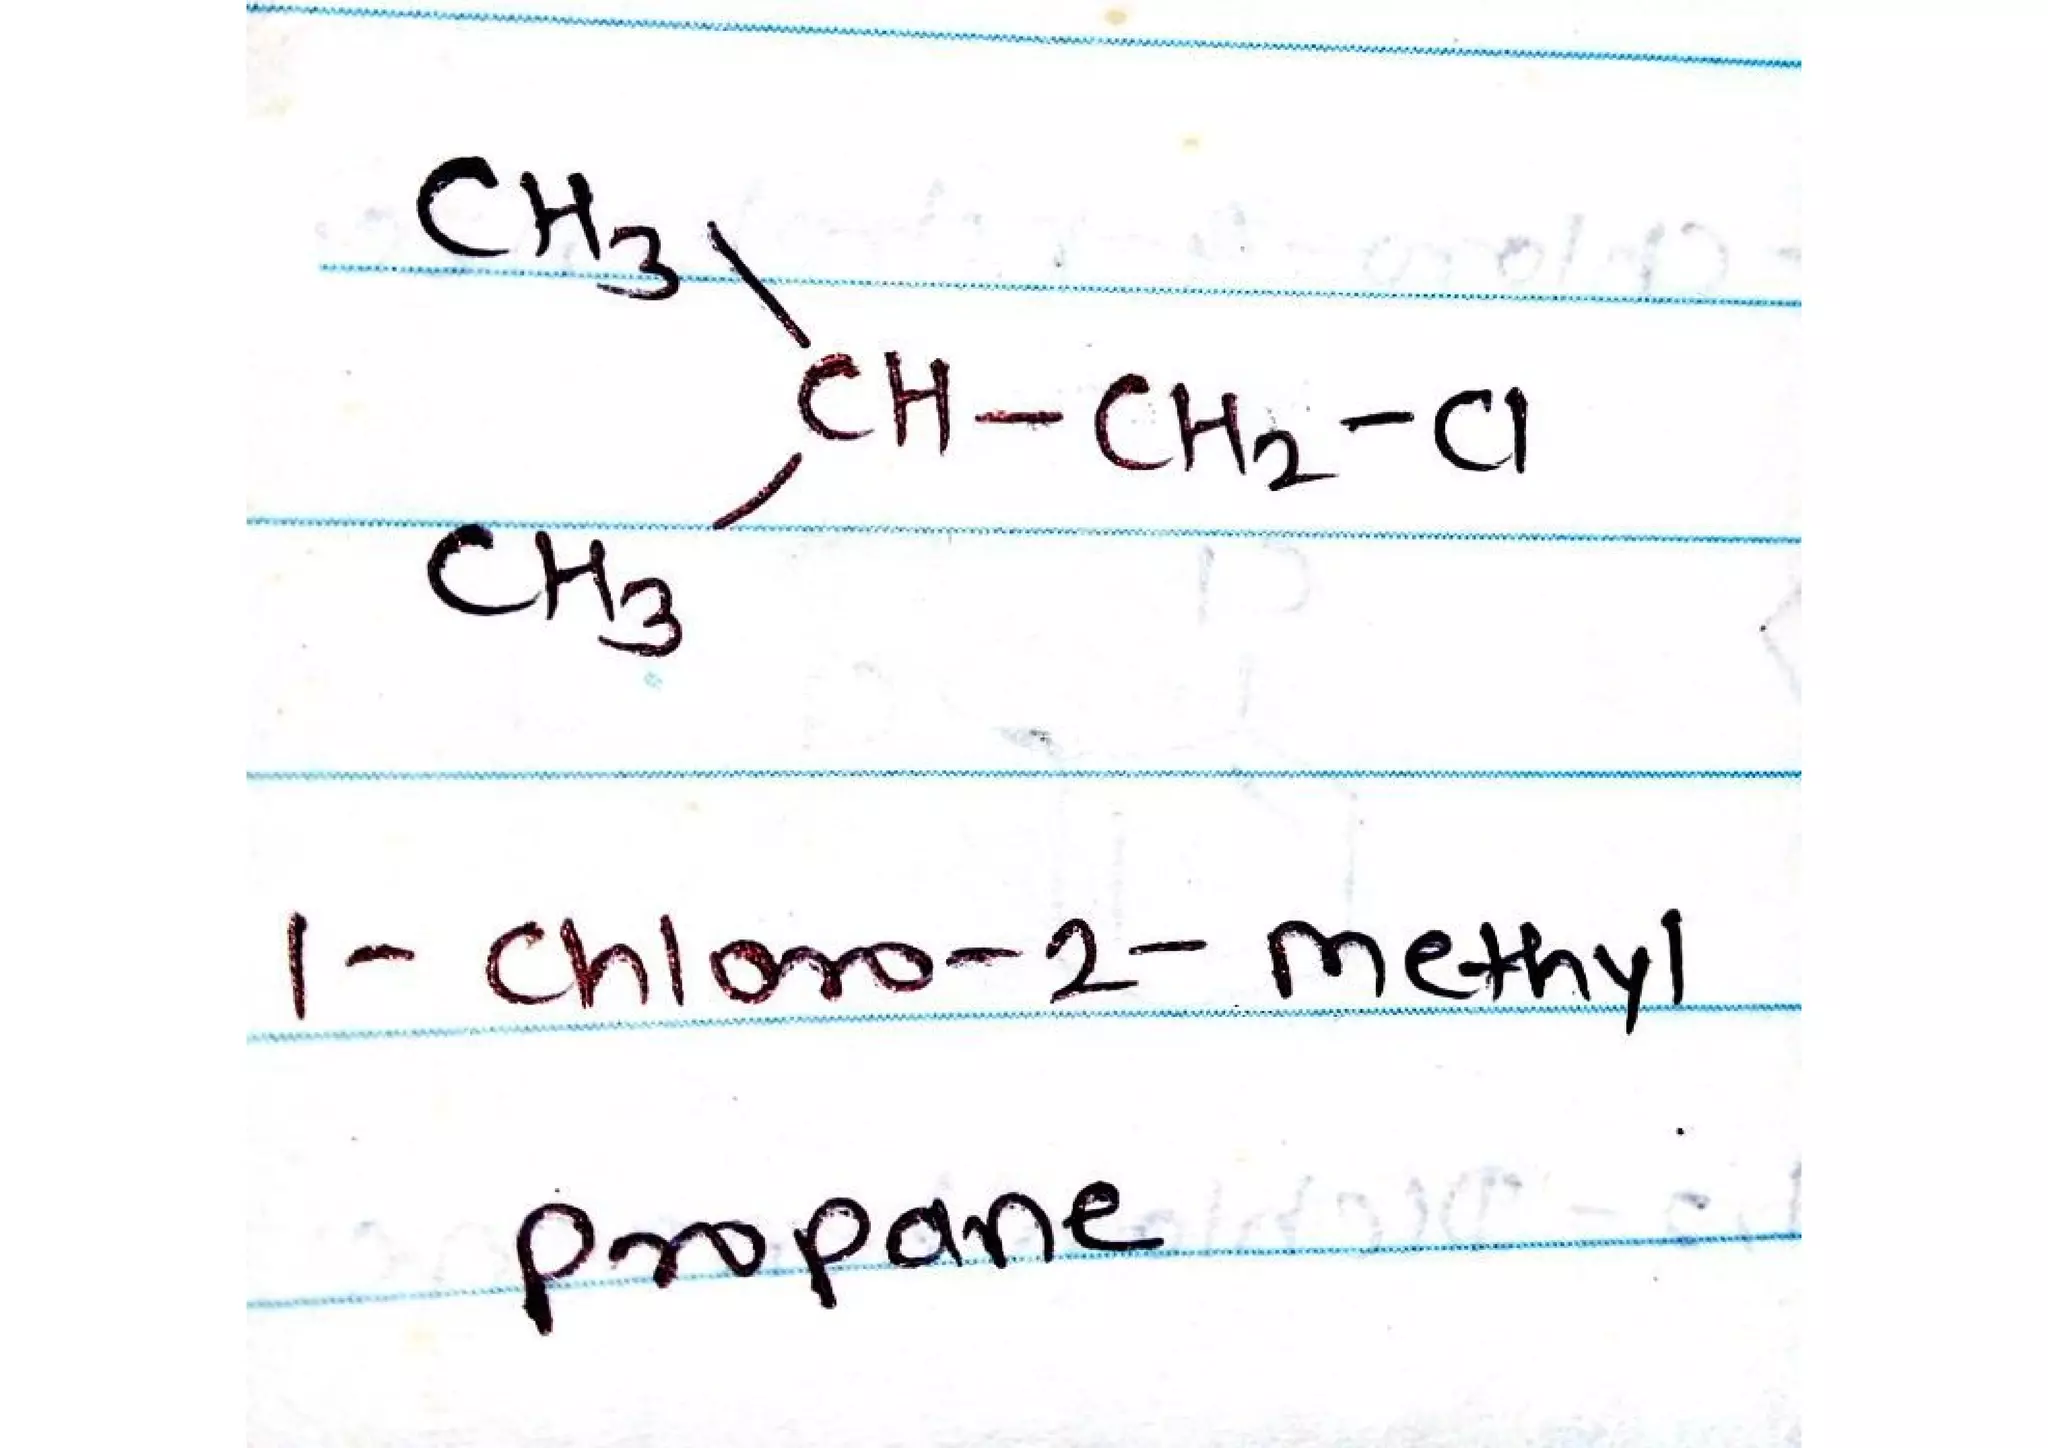 CH₃
CH-CH₂-Cl
CH₃
1-Chloro-2-methyl
propane